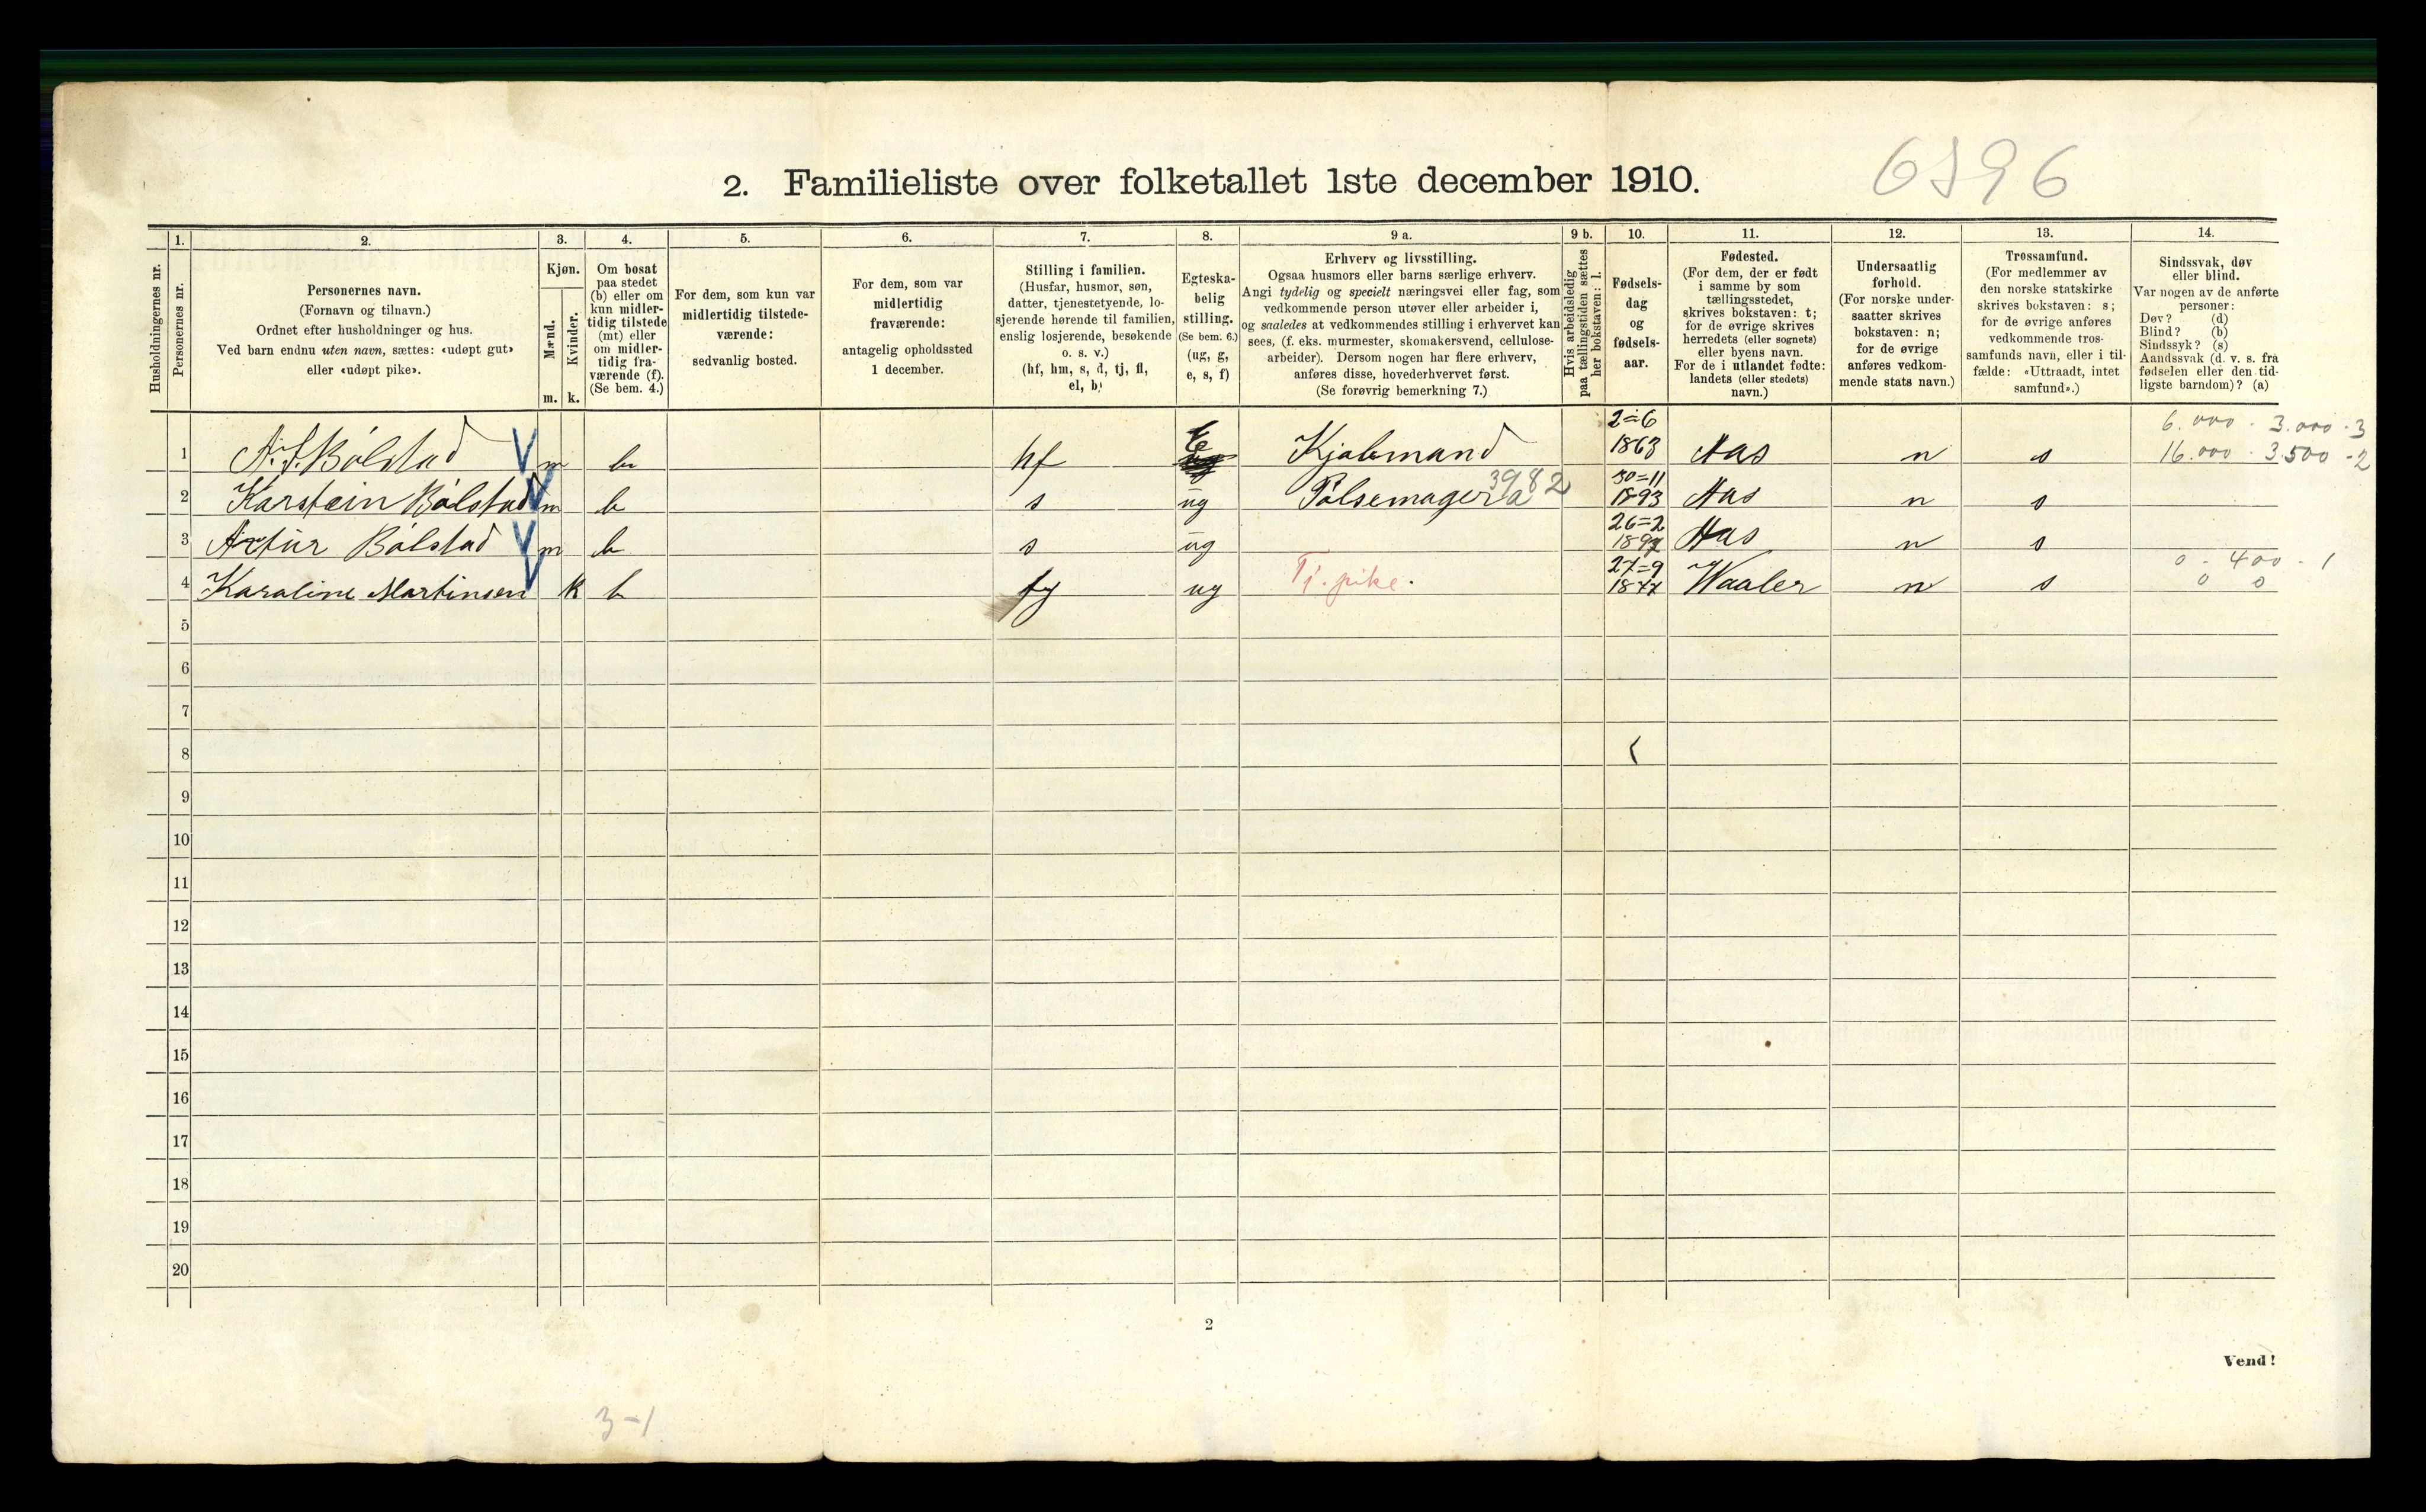 6396
2. Familieliste over folketallet 1ste december 1910.
Husholdningernes nr.
1. Personernes nr.
2. Personernes navn.
(Fornavn og tilnavn.)
Ordnet efter husholdninger og hus.
Ved barn endnu uten navn, sættes: «udøpt gut»
eller «udøpt pike».
3. Kjøn.
Mænd. m.
Kvinder. k.
4. Om bosat
paa stedet
(b) eller om
kun midler-
tidig tilstede
(mt) eller
om midler-
tidig fra-
værende (f).
(Se bem. 4.)
5. For dem, som kun var
midlertidig tilstede-
værende:
sedvanlig bosted.
6. For dem, som var
midlertidig
fraværende:
antagelig opholdssted
1 december.
7. Stilling i familien.
(Husfar, husmor, søn,
datter, tjenestetyende, lo-
sjerende hørende til familien,
enslig losjerende, besøkende
o. s. v.)
(hf, hm, s, d, tj, fl,
el, b)
8. Egteska-
belig
stilling.
(Se bem. 6.)
(ug, g,
e, s, f)
9 a. Erhverv og livsstilling.
Ogsaa husmors eller barns særlige erhverv.
Angi tydelig og specielt næringsvei eller fag, som
vedkommende person utøver eller arbeider i,
og saaledes at vedkommendes stilling i erhvervet kan
sees, (f. eks. murmester, skomakersvend, cellulose-
arbeider). Dersom nogen har flere erhverv,
anføres disse, hovederhvervet først.
(Se forøvrig bemerkning 7.)
9 b. Hvis arbeidsledig
paa tællingstiden sættes
her bokstaven: l.
10. Fødsels-
dag
og
fødsels-
aar.
11. Fødested.
(For dem, der er født
i samme by som
tællingsstedet,
skrives bokstaven: t;
for de øvrige skrives
herredets (eller sognets)
eller byens navn.
For de i utlandet fødte:
landets (eller stedets)
navn.)
12. Undersaatlig
forhold.
(For norske under-
saatter skrives
bokstaven: n;
for de øvrige
anføres vedkom-
mende stats navn.)
13. Trossamfund.
(For medlemmer av
den norske statskirke
skrives bokstaven: s;
for de øvrige anføres
vedkommende tros-
samfunds navn, eller i til-
fælde: «Uttraadt, intet
samfund».)
14. Sindssvak, døv
eller blind.
Var nogen av de anførte
personer:
Døv? (d)
Blind? (b)
Sindssyk? (s)
Aandssvak (d. v. s. fra
fødselen eller den tid-
ligste barndom)? (a)
6.000 . 3.000 . 3
1 A. S. Bölstad V m b hf E Kjøbmand 2=6 1863 Aas n s 16.000 . 3.500 - 2
2 Karstein Bölstad V m b s ug Pølsemager a 3982 30=11 1893 Aas n s
3 Artur Bölstad V m b s ug 26=2 Aas n s
0 - 400 - 1
4 Karaline Martinsen V k b ty ug Tj. pike. 27=9 1877 Waaler n s 0 0
5
6
7
8
9
10
11
12
13
14
15
16
17
18
19
20
2
Vend!
3-1